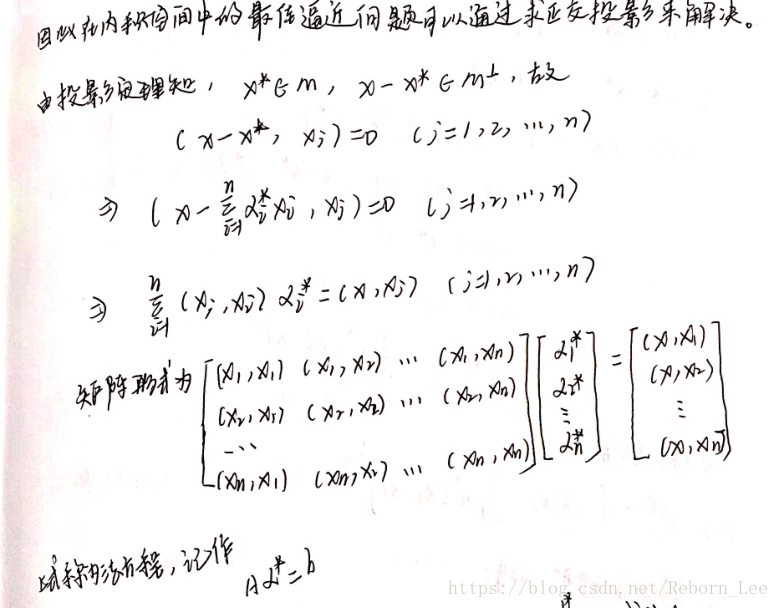 因此在内积空间中的最佳逼近问题可以通过求正交投影来解决。
由投影定理知, x* ∈ M, x-x* ∈ M⊥, 故
(x-x*, xj)=0 (j=1,2,…,n)
⇒ (x-∑_{i=1}^{n} αi* xi, xj)=0 (j=1,2,…,n)
⇒ ∑_{i=1}^{n} (xj, xi) αi* = (x, xj) (j=1,2,…,n)
矩阵形式为 [(x1,x1) (x1,x2) … (x1,xn)] [α1*] = [(x,x1)]
(x2,x1) (x2,x2) … (x2,xn) α2* (x,x2)
… ⋮ ⋮
(xn,x1) (xn,x2) … (xn,xn) αn* (x,xn)
称法方程, 记作
Aα*=b
https://blog.csdn.net/Reborn_Lee